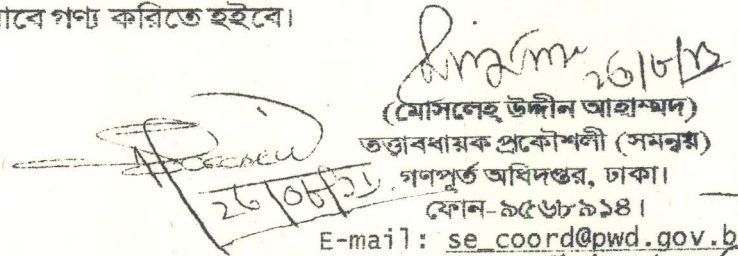 গণ্য করিতে হইবে।
(মোসলেহ উদ্দীন আহাম্মদ)
তত্ত্বাবধায়ক প্রকৌশলী (সমন্বয়)
গণপূর্ত অধিদপ্তর, ঢাকা।
ফোন-৯৫৬৮৯১৪।
E-mail: se_coord@pwd.gov.b